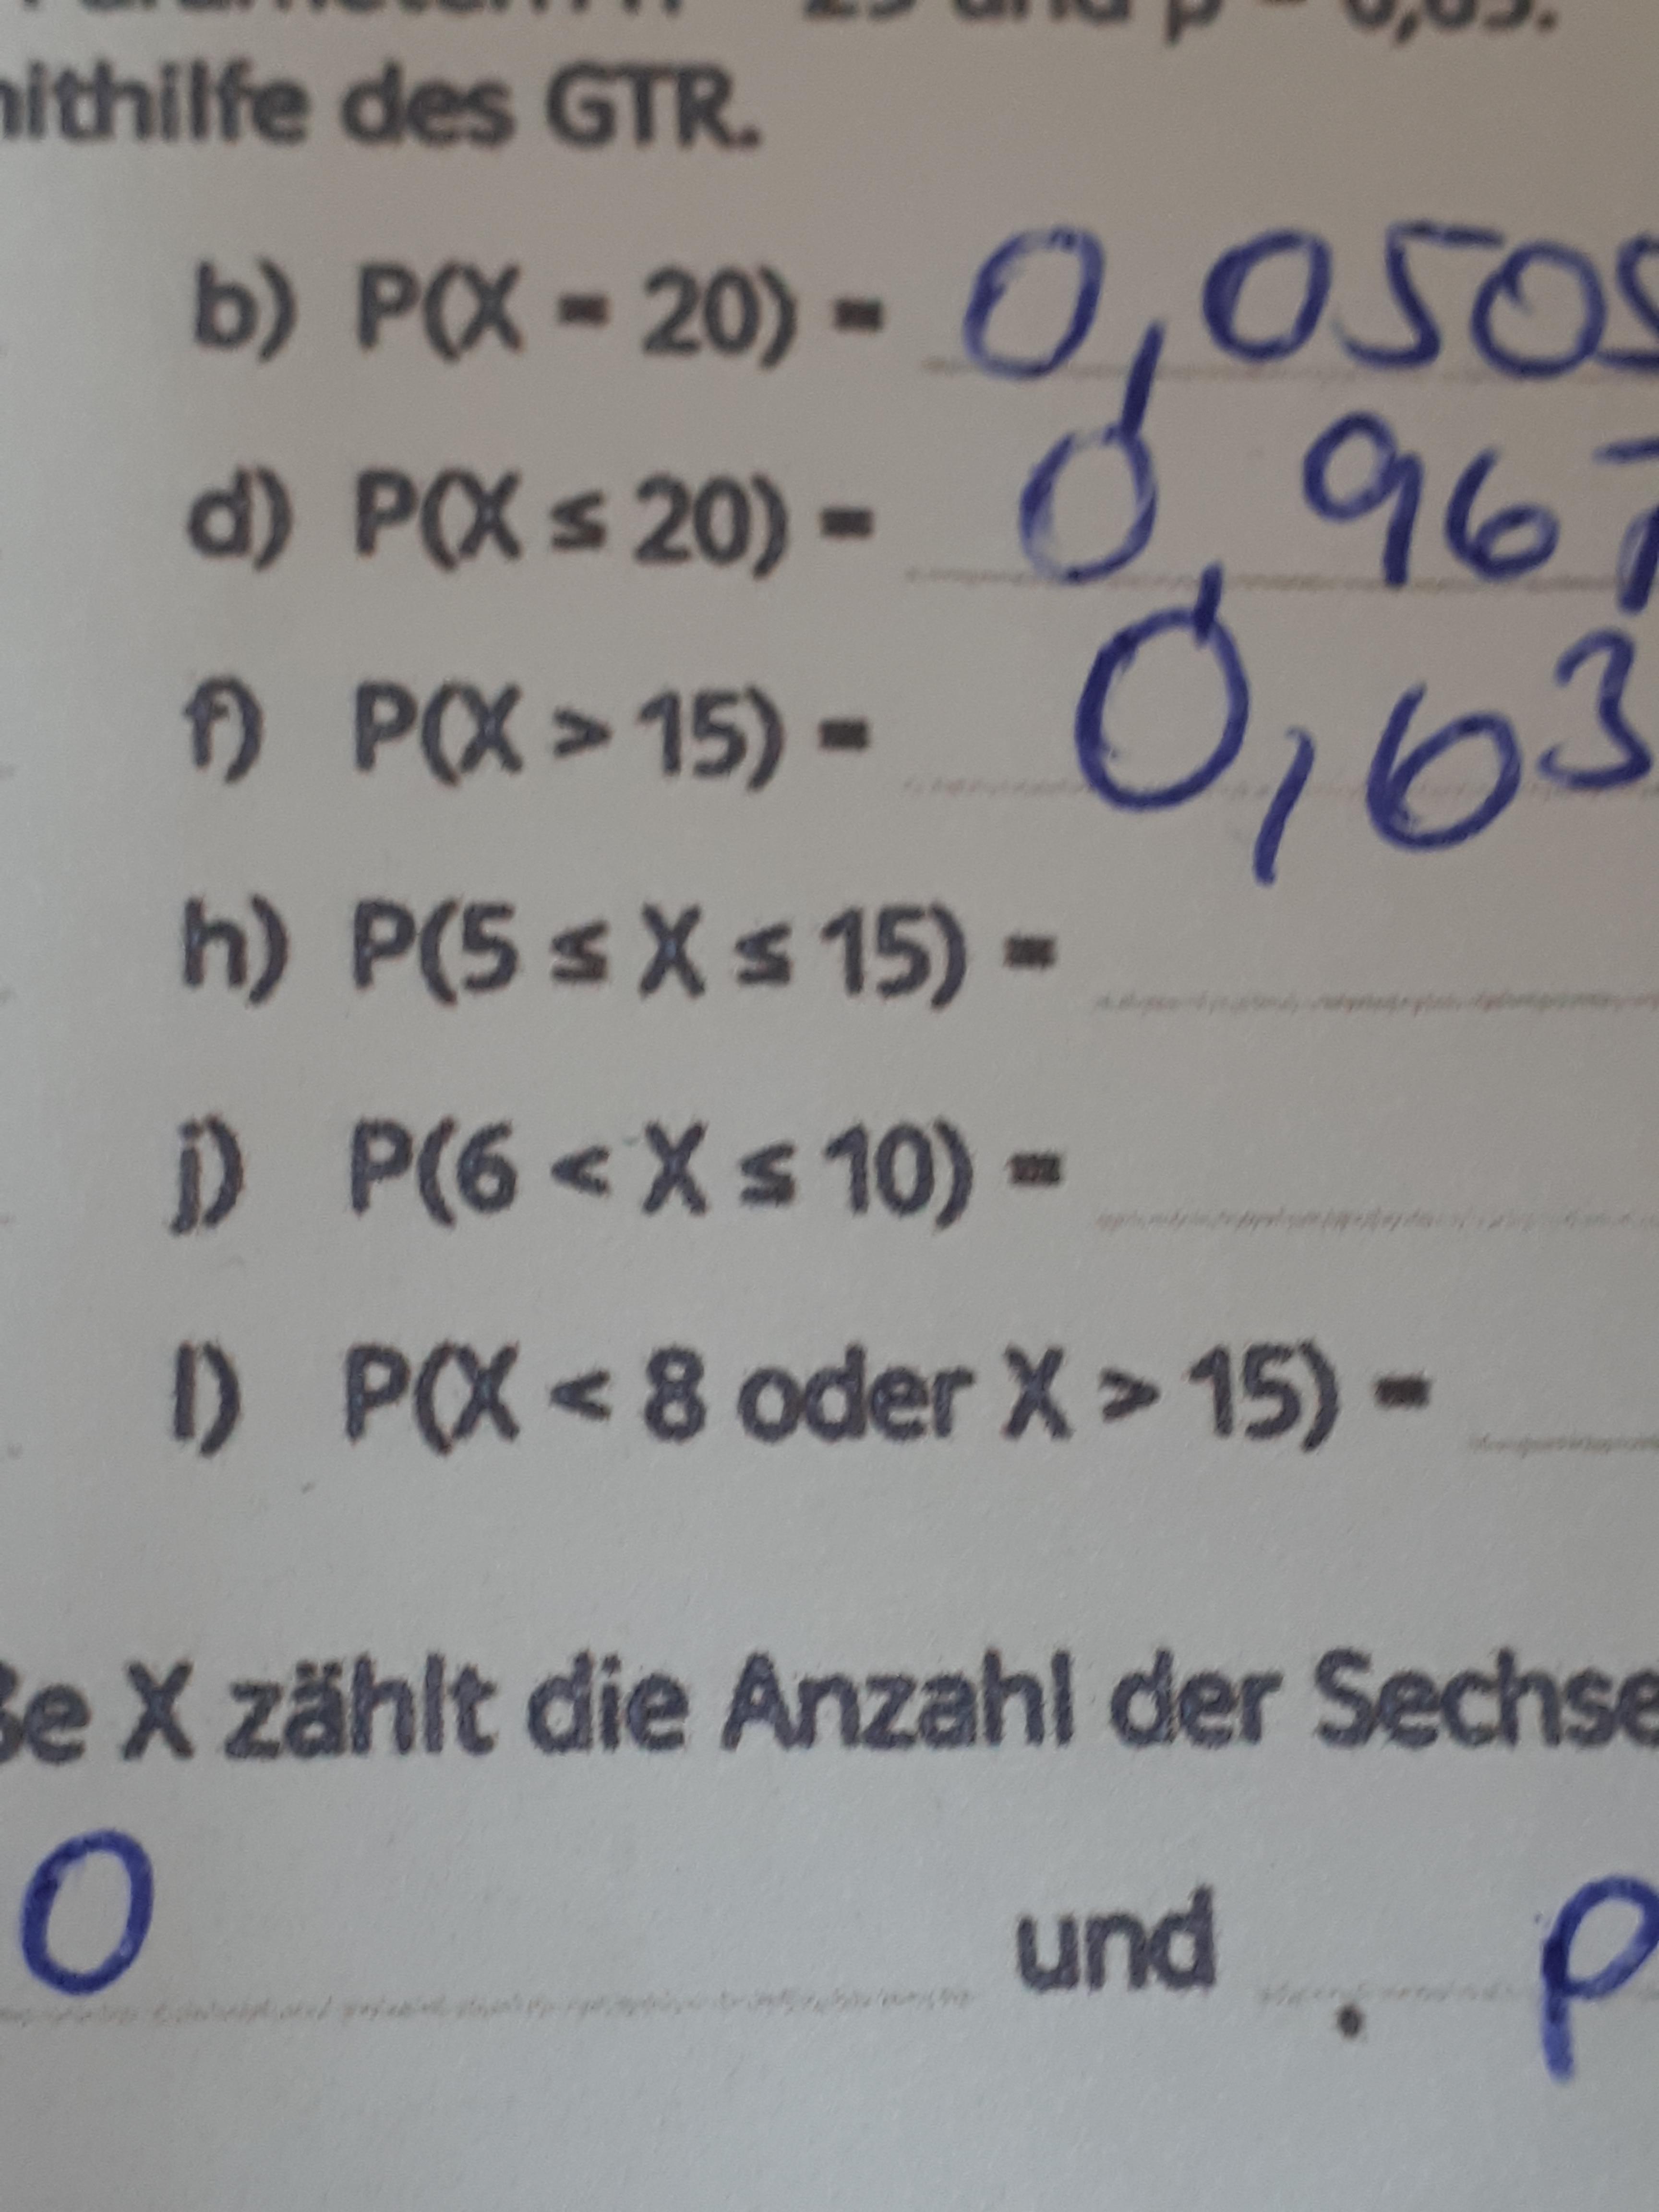 und p = 0,65.
mithilfe des GTR.
b) P(X = 20) = 0,050
d) P(X ≤ 20) = 0,967
f) P(X > 15) = 0,63
h) P(5 ≤ X ≤ 15) =
j) P(6 < X ≤ 10) =
l) P(X < 8 oder X > 15) =
ße X zählt die Anzahl der Sechse
0 und . P